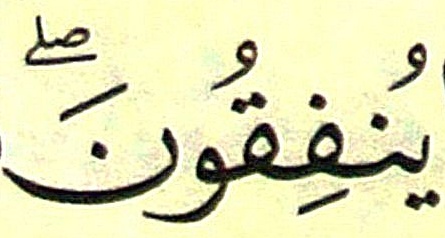 يُنفِقُونَ ۖ